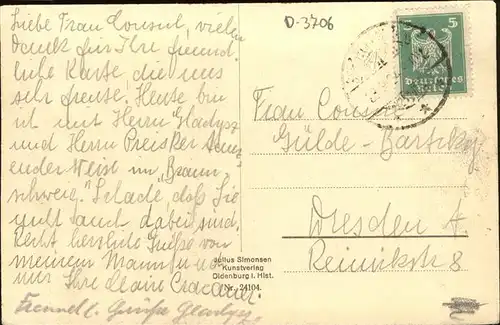 D-3706
Liebe Frau Consul, vielen
Dank für Ihre freund-
liche Karte, die uns
sehr freute. Heute bin
ich mit Herrn Gladysz
und Herrn Preisker
ender Weise im „Braun-
schweig." Schade, daß Sie
nicht auch dabei sind.
Recht herzliche Grüße von
meinem Mann u.
uns Ihre Claire
Grüße Gladysz
5
Deutsches
Reich
Frau Consul
Gülde-Bartzky
Dresden A.
Reinikstr 8
Julius Simonsen
Kunstverlag
Oldenburg i. Hlst.
Nr. 24104.